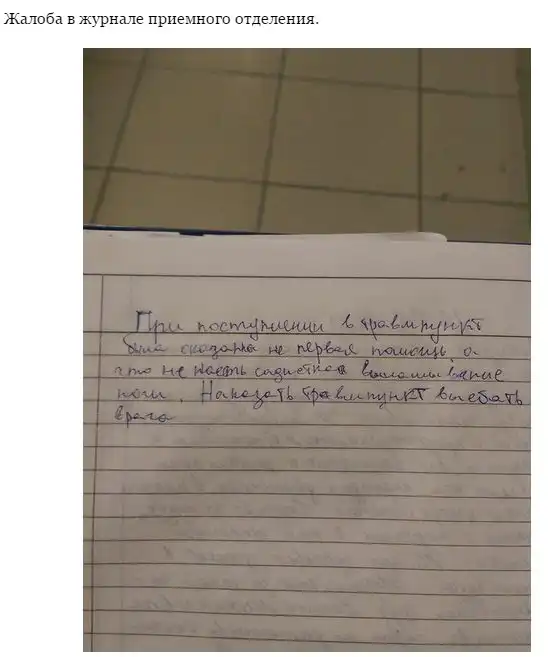 Жалоба в журнале приемного отделения.
При поступлении в травмпункт
была оказана не первая помощь, а
что не насть садистков выламывание
ноги. Наказать травмпункт выебать
врага